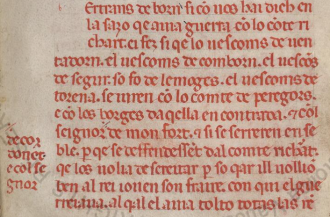 ertrans de born si cō uos hai dich en
la sazo qe auia guerra cō lo cōte ri
chart. el fez si qe lo uescoms de uen
tadorn. el uescoms de comborn. el uescōs
de segur. so fo de lemoges. el uescoms de
torena. se iuren cō lo comte de peregors.
e cō los borges daqella en contrada. 7 cōl
seignor de mon fort. 7 si se serreren en se
ble. p qe se deffendesset dal comte richart.
qe los uolia deseretar p so qar ill uollio
ben al rei iouen son fraire. con qui el gue
rreiaua. al qal el auia tolto totas las rē
de gor
don et
e col se
gnor